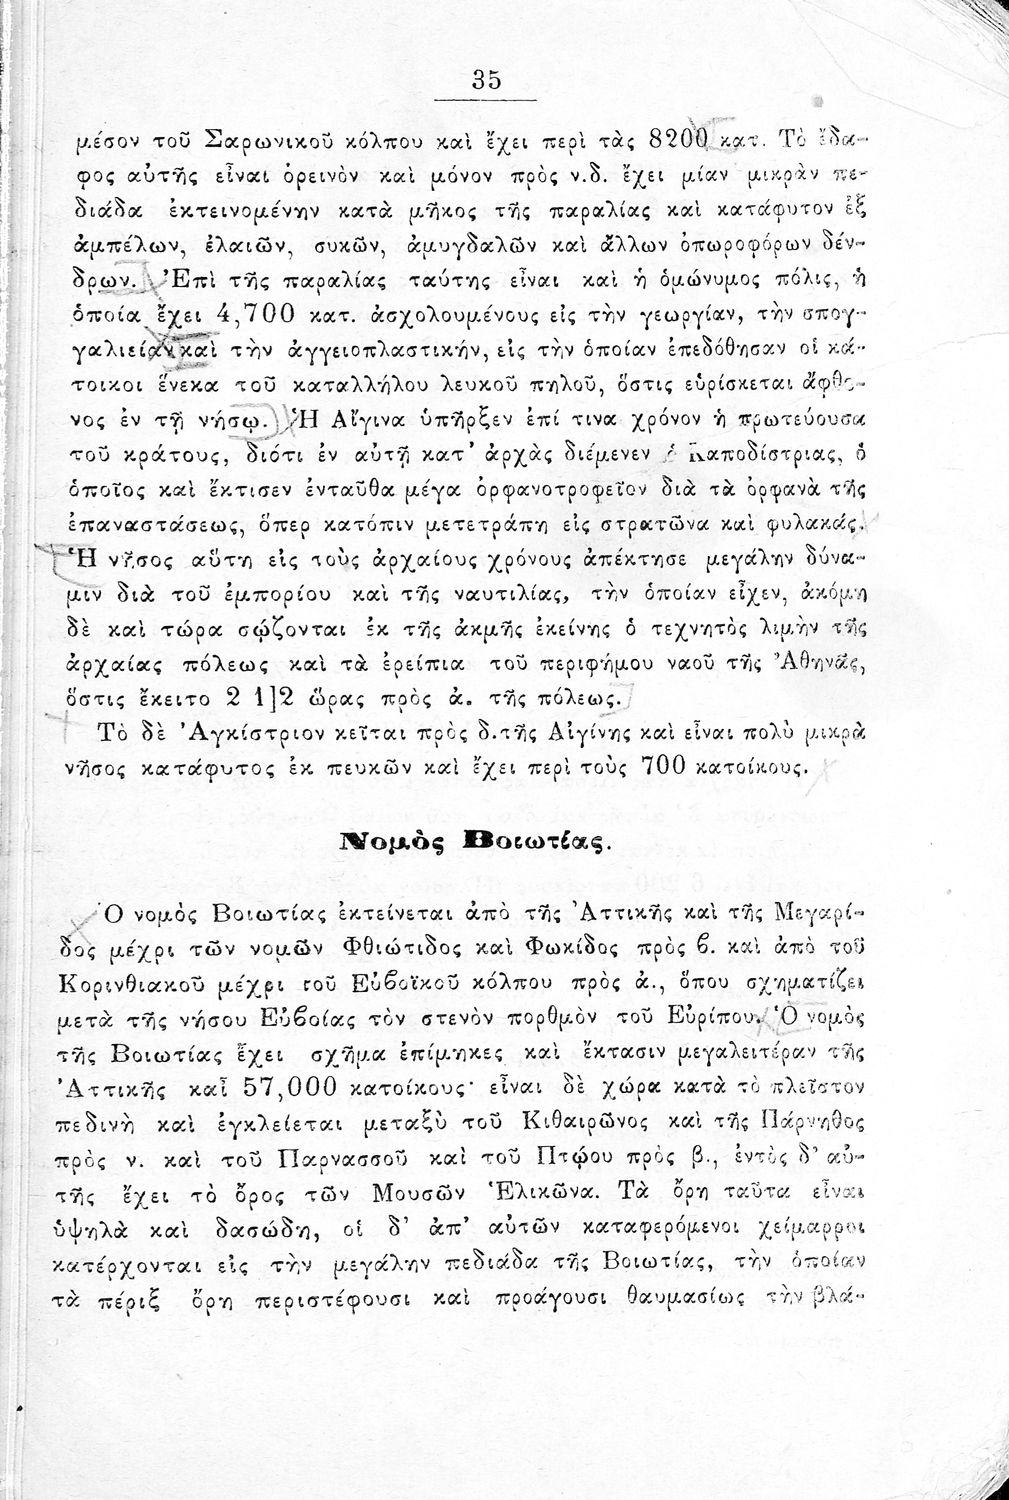 35
μέσον τοῦ Σαρωνικοῦ κόλπου καὶ ἔχει περὶ τὰς 8200 κατ. Τὸ ἔδα-
φος αὐτῆς εἶναι ὀρεινὸν καὶ μόνον πρὸς ν.δ. ἔχει μίαν μικρὰν πε-
διάδα ἐκτεινομένην κατὰ μῆκος τῆς παραλίας καὶ κατάφυτον ἐξ
ἀμπέλων, ἐλαιῶν, συκῶν, ἀμυγδαλῶν καὶ ἄλλων ὀπωροφόρων δέν-
δρων. Ἐπὶ τῆς παραλίας ταύτης εἶναι καὶ ἡ ὁμώνυμος πόλις, ἡ
ὁποία ἔχει 4,700 κατ. ἀσχολουμένους εἰς τὴν γεωργίαν, τὴν σπογ-
γαλιείαν καὶ τὴν ἀγγειοπλαστικήν, εἰς τὴν ὁποίαν ἐπεδόθησαν οἱ κά-
τοικοι ἕνεκα τοῦ καταλλήλου λευκοῦ πηλοῦ, ὅστις εὑρίσκεται ἄφθο-
νος ἐν τῇ νήσῳ. Ἡ Αἴγινα ὑπῆρξεν ἐπί τινα χρόνον ἡ πρωτεύουσα
τοῦ κράτους, διότι ἐν αὐτῇ κατ' ἀρχὰς διέμενεν ὁ Καποδίστριας, ὁ
ὁποῖος καὶ ἔκτισεν ἐνταῦθα μέγα ὀρφανοτροφεῖον διὰ τὰ ὀρφανὰ τῆς
ἐπαναστάσεως, ὅπερ κατόπιν μετετράπη εἰς στρατῶνα καὶ φυλακάς.
Ἡ νῆσος αὕτη εἰς τοὺς ἀρχαίους χρόνους ἀπέκτησε μεγάλην δύνα-
μιν διὰ τοῦ ἐμπορίου καὶ τῆς ναυτιλίας, τὴν ὁποίαν εἶχεν, ἀκόμη
δὲ καὶ τώρα σῴζονται ἐκ τῆς ἀκμῆς ἐκείνης ὁ τεχνητὸς λιμὴν τῆς
ἀρχαίας πόλεως καὶ τὰ ἐρείπια τοῦ περιφήμου ναοῦ τῆς Ἀθηνᾶς,
ὅστις ἔκειτο 2 1]2 ὥρας πρὸς ἀ. τῆς πόλεως.
Τὸ δὲ Ἀγκίστριον κεῖται πρὸς δ.τῆς Αἰγίνης καὶ εἶναι πολὺ μικρὰ
νῆσος κατάφυτος ἐκ πευκῶν καὶ ἔχει περὶ τοὺς 700 κατοίκους.
Νομὸς Βοιωτίας.
Ὁ νομὸς Βοιωτίας ἐκτείνεται ἀπὸ τῆς Ἀττικῆς καὶ τῆς Μεγαρί-
δος μέχρι τῶν νομῶν Φθιώτιδος καὶ Φωκίδος πρὸς β. καὶ ἀπὸ τοῦ
Κορινθιακοῦ μέχρι τοῦ Εὐβοϊκοῦ κόλπου πρὸς ἀ., ὅπου σχηματίζει
μετὰ τῆς νήσου Εὐβοίας τὸν στενὸν πορθμὸν τοῦ Εὐρίπου. Ὁ νομὸς
τῆς Βοιωτίας ἔχει σχῆμα ἐπίμηκες καὶ ἔκτασιν μεγαλειτέραν τῆς
Ἀττικῆς καὶ 57,000 κατοίκους· εἶναι δὲ χώρα κατὰ τὸ πλεῖστον
πεδινὴ καὶ ἐγκλείεται μεταξὺ τοῦ Κιθαιρῶνος καὶ τῆς Πάρνηθος
πρὸς ν. καὶ τοῦ Παρνασσοῦ καὶ τοῦ Πτῴου πρὸς β., ἐντὸς δ' αὐ-
τῆς ἔχει τὸ ὄρος τῶν Μουσῶν Ἑλικῶνα. Τὰ ὄρη ταῦτα εἶναι
ὑψηλὰ καὶ δασώδη, οἱ δ' ἀπ' αὐτῶν καταφερόμενοι χείμαρροι
κατέρχονται εἰς τὴν μεγάλην πεδιάδα τῆς Βοιωτίας, τὴν ὁποίαν
τὰ πέριξ ὄρη περιστέφουσι καὶ προάγουσι θαυμασίως τὴν βλά-